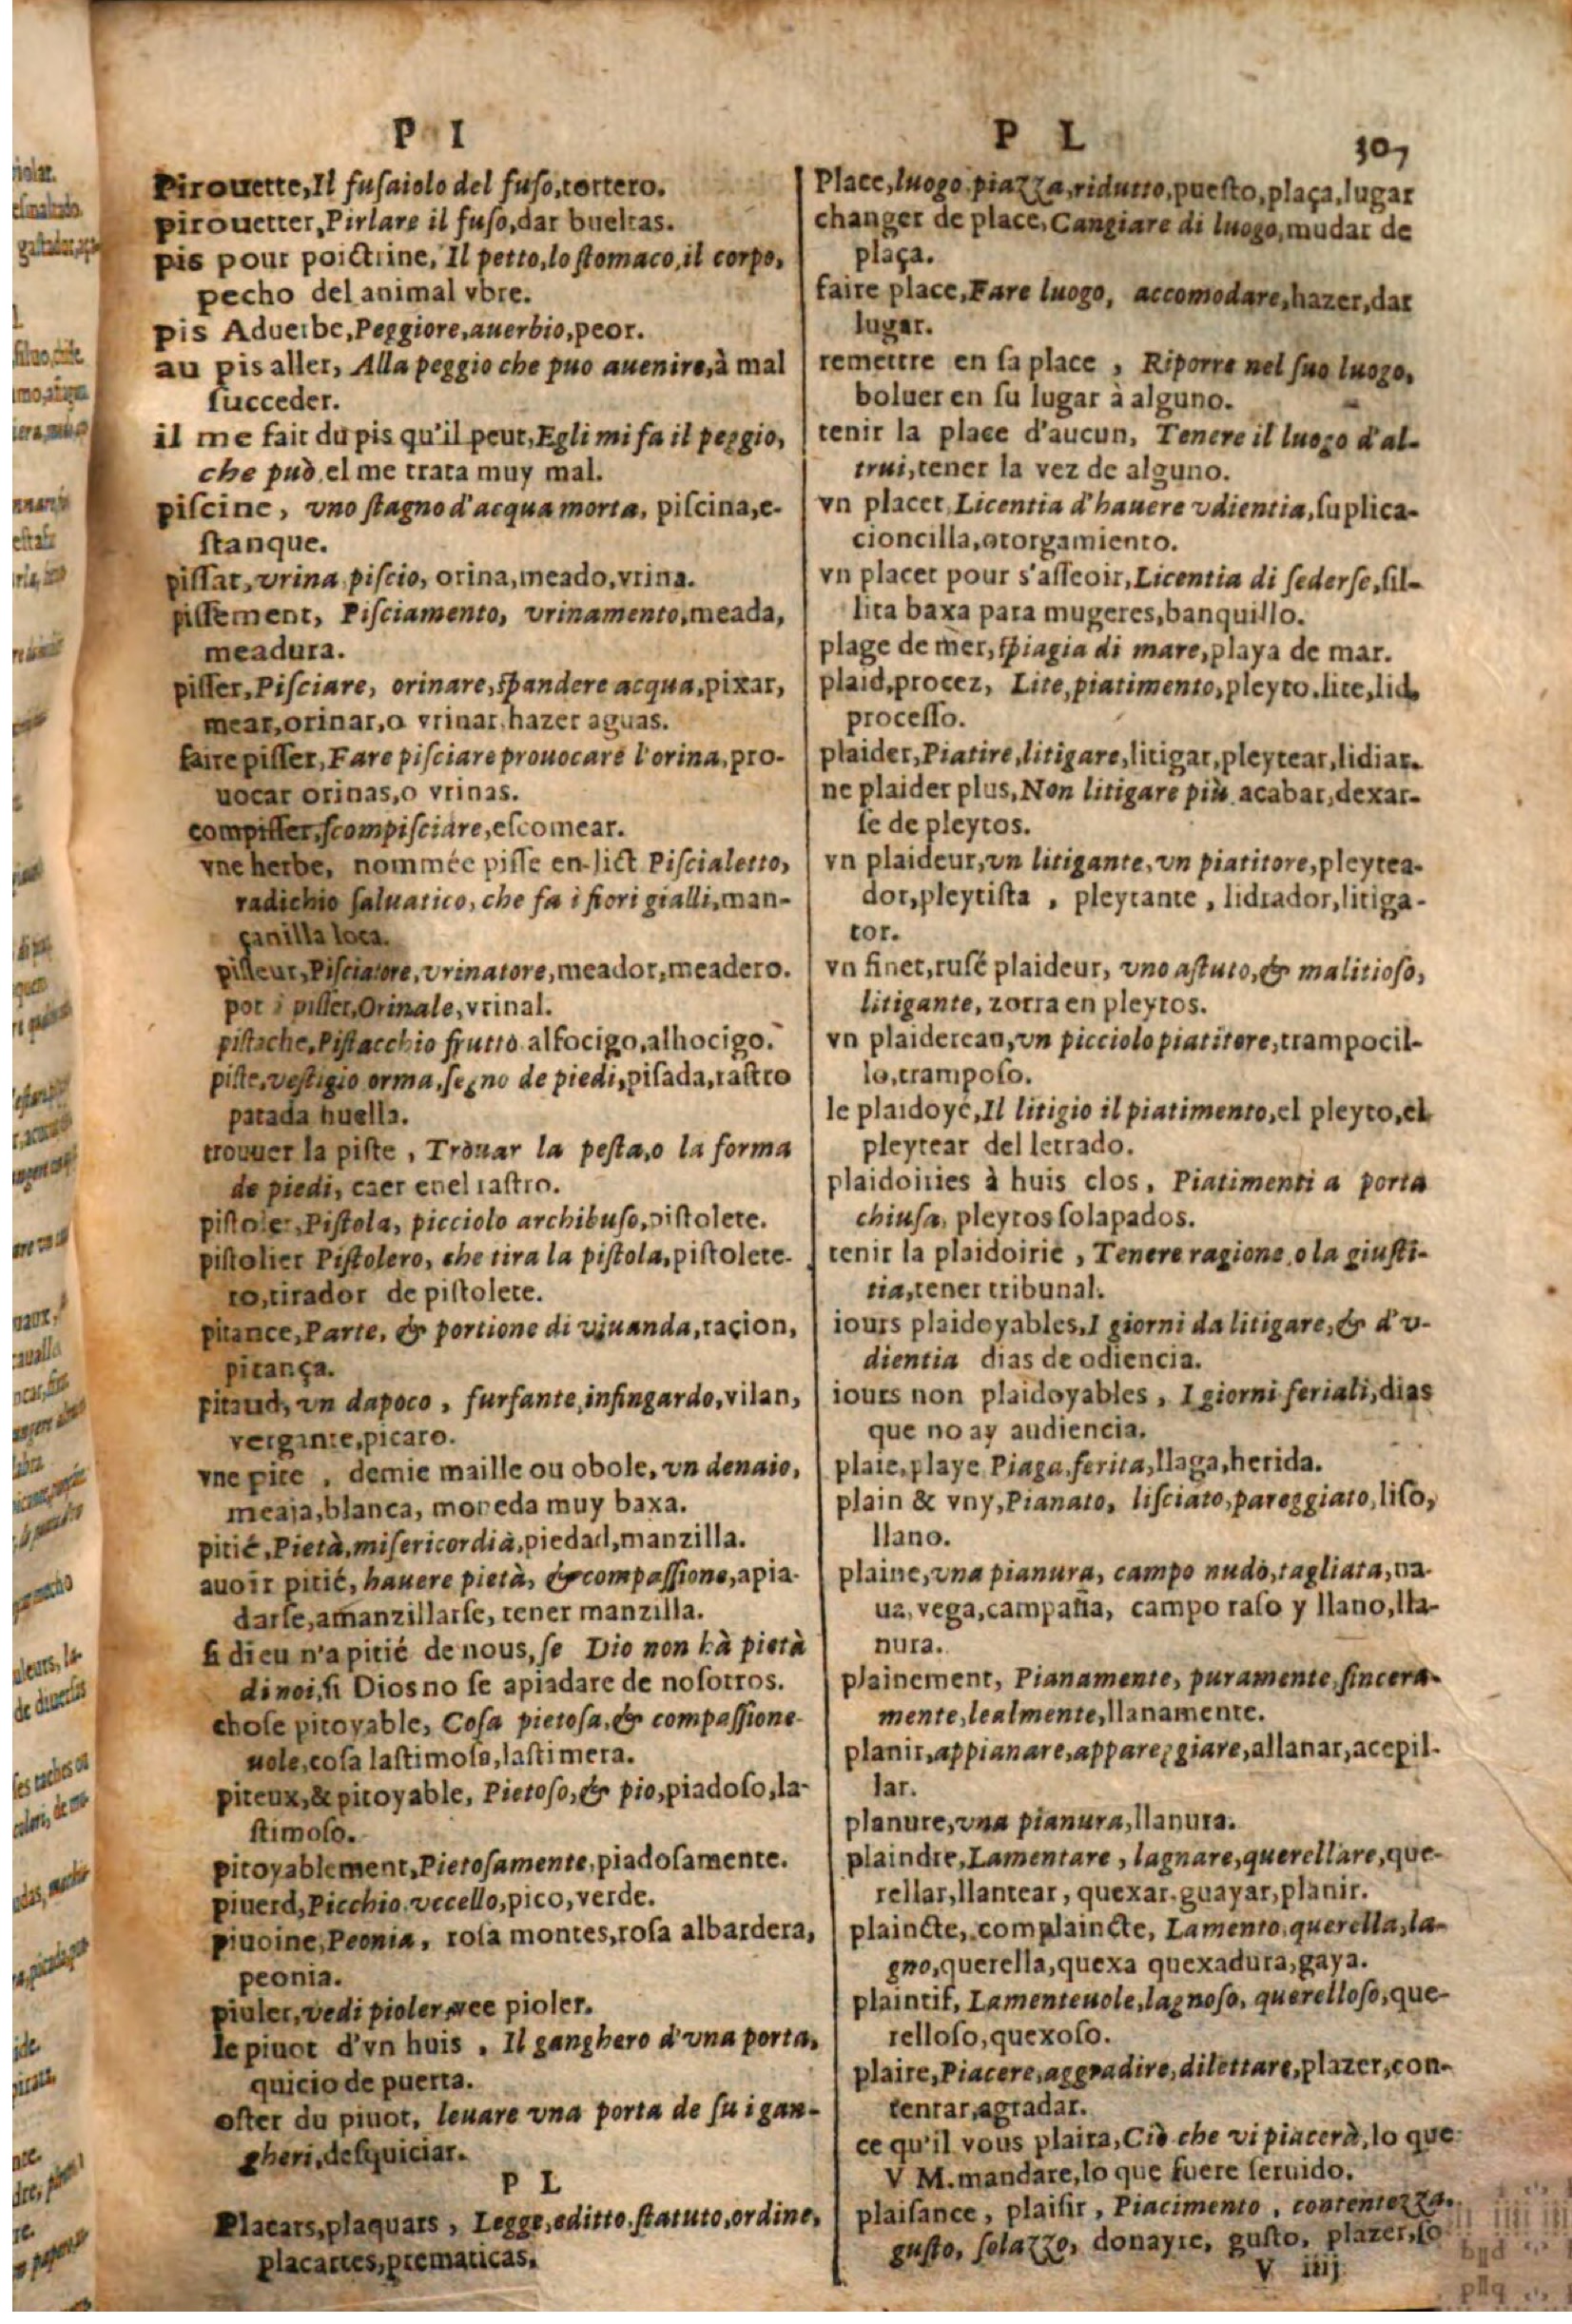 P I
Pirouette, Il fuſaiolo del fuſo, tortero.
pirouetter, Pirlare il fuſo, dar bueltas.
pis pour poictrine, Il petto, lo ſtomaco, il corpo,
pecho del animal vbre.
pis Aduerbe, Peggiore, auerbio, peor.
au pis aller, Alla peggio che puo auenire, à mal
ſucceder.
il me fait du pis qu'il peut, Egli mi fa il peggio,
che può, el me trata muy mal.
piſcine, vno ſtagno d'acqua morta, piſcina, e-
ſtanque.
piſſat, vrina piſcio, orina, meado, vrina.
piſſement, Piſciamento, vrinamento, meada,
meadura.
piſſer, Piſciare, orinare, ſpandere acqua, pixar,
mear, orinar, o vrinar, hazer aguas.
faire piſſer, Fare piſciare prouocare l'orina, pro-
uocar orinas, o vrinas.
compiſſer, ſcompiſciare, eſcomear.
vne herbe, nommée piſſe en-lict Piſcialetto,
radichio ſaluatico, che fa i fiori gialli, man-
çanilla loca.
piſſeur, Piſciatore, vrinatore, meador, meadero.
pot à piſſer, Orinale, vrinal.
piſtache, Piſtacchio frutto alfocigo, alhocigo.
piſte, veſtigio orma, ſegno de piedi, piſada, raſtro
patada huella.
trouuer la piſte, Trouar la peſta, o la forma
de piedi, caer en el raſtro.
piſtole, Piſtola, picciolo archibuſo, piſtolete.
piſtolier Piſtolero, che tira la piſtola, piſtolete-
ro, tirador de piſtolete.
pitance, Parte, & portione di viuanda, raçion,
pitança.
pitaud, vn dapoco, furfante, infingardo, vilan,
vergante, picaro.
vne pite, demie maille ou obole, vn denaio,
meaja, blanca, moneda muy baxa.
pitié, Pietà, miſericordia, piedad, manzilla.
auoir pitié, hauere pietà, & compaſſione, apia-
darſe, amanzillarſe, tener manzilla.
ſi dieu n'a pitié de nous, ſe Dio non hà pietà
di noi, ſi Dios no ſe apiadare de noſotros.
choſe pitoyable, Coſa pietoſa, & compaſſione-
uole, coſa laſtimoſa, laſtimera.
piteux, & pitoyable, Pietoſo, & pio, piadoſo, la-
ſtimoſo.
pitoyablement, Pietoſamente, piadoſamente.
piuerd, Picchio vccello, pico, verde.
piuoine, Peonia, roſa montes, roſa albardera,
peonia.
piuler, vedi pioler, vee pioler.
le piuot d'vn huis, Il ganghero d'vna porta,
quicio de puerta.
oſter du piuot, leuare vna porta de ſu i gan-
gheri, deſquiciar.
P L
Placars, plaquars, Legge, editto, ſtatuto, ordine,
placartes, prematicas.
P L 307
Place, luogo, piazza, ridutto, pueſto, plaça, lugar
changer de place, Cangiare di luogo, mudar de
plaça.
faire place, Fare luogo, accomodare, hazer, dar
lugar.
remettre en ſa place, Riporre nel ſuo luogo,
boluer en ſu lugar à alguno.
tenir la place d'aucun, Tenere il luogo d'al-
trui, tener la vez de alguno.
vn placet, Licentia d'hauere vdientia, ſuplica-
cioncilla, otorgamiento.
vn placet pour s'aſſeoir, Licentia di ſederſe, ſil-
lita baxa para mugeres, banquillo.
plage de mer, ſpiagia di mare, playa de mar.
plaid, procez, Lite, piatimento, pleyto, lite, lid,
proceſſo.
plaider, Piatire, litigare, litigar, pleytear, lidiar.
ne plaider plus, Non litigare più, acabar, dexar-
ſe de pleytos.
vn plaideur, vn litigante, vn piatitore, pleytea-
dor, pleytiſta, pleytante, lidiador, litiga-
tor.
vn finet, ruſé plaideur, vno aſtuto, & malitioſo,
litigante, zorra en pleytos.
vn plaidereau, vn picciolo piatitore, trampocil-
lo, trampoſo.
le plaidoyé, Il litigio il piatimento, el pleyto, el
pleytear del letrado.
plaidoiries à huis clos, Piatimenti a porta
chiuſa, pleytos ſolapados.
tenir la plaidoirie, Tenere ragione, o la giuſti-
tia, tener tribunal.
iours plaidoyables, I giorni da litigare, & d'v-
dientia dias de odiencia.
iours non plaidoyables, I giorni feriali, dias
que no ay audiencia.
plaie, playe, Piaga, ferita, llaga, herida.
plain & vny, Pianato, liſciato, pareggiato, liſo,
llano.
plaine, vna pianura, campo nudo, tagliata, na-
ua, vega, campaña, campo raſo y llano, lla-
nura.
plainement, Pianamente, puramente, ſincera-
mente, lealmente, llanamente.
planir, appianare, appareggiare, allanar, acepil-
lar.
planure, vna pianura, llanura.
plaindre, Lamentare, lagnare, querellare, que-
rellar, llantear, quexar, guayar, planir.
plaincte, complaincte, Lamento, querella, la-
gno, querella, quexa quexadura, gaya.
plaintif, Lamenteuole, lagnoſo, querelloſo, que-
relloſo, quexoſo.
plaire, Piacere, aggradire, dilettare, plazer, con-
tentar, agradar.
ce qu'il vous plaira, Ciò che vi piacerà, lo que
V M. mandare, lo que fuere ſeruido.
plaiſance, plaiſir, Piacimento, contentezza,
guſto, ſolazzo, donayre, guſto, plazer, ſo
V iiij